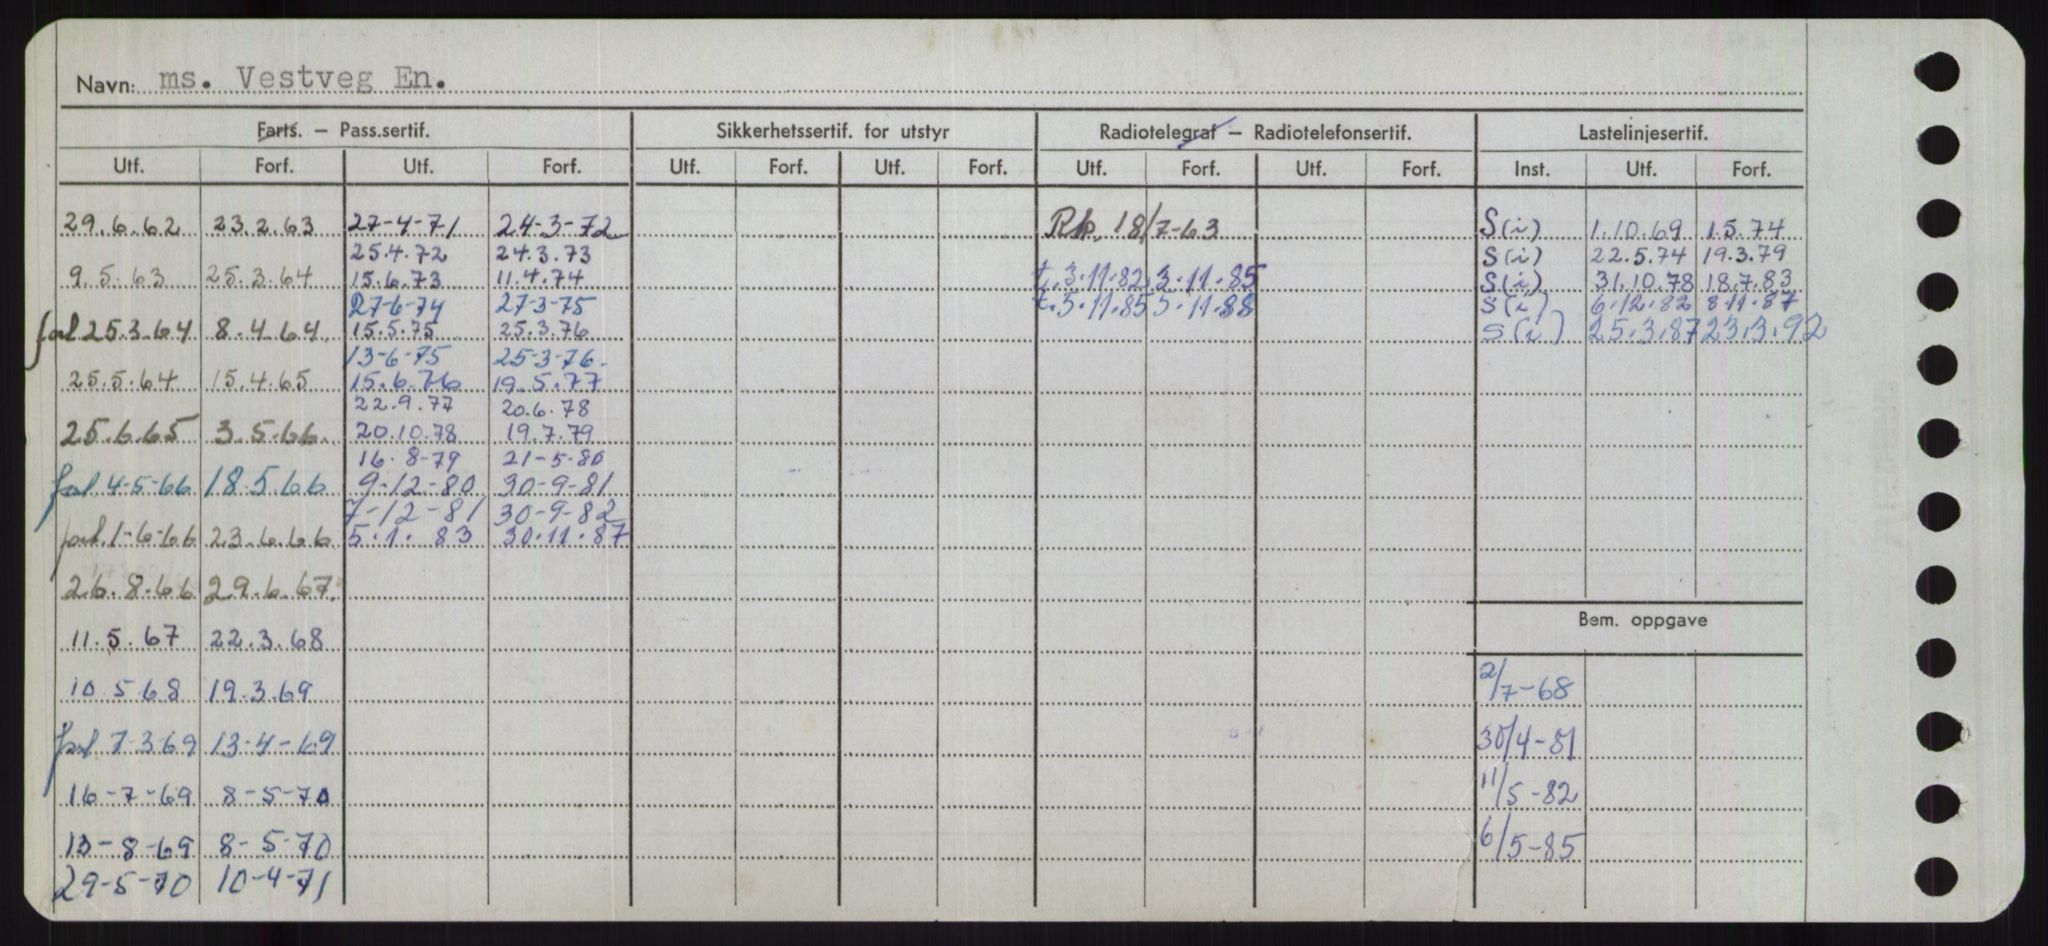 Navn: ms. Vestveg En.
Farts. – Pass.sertif. Sikkerhetssertif. for utstyr Radiotelegraf – Radiotelefonsertif. Lastelinjesertif.
Utf. Forf. Utf. Forf. Utf. Forf. Utf. Forf. Utf. Forf. Utf. Forf. Inst. Utf. Forf.
29.6.62 23.2.63 27-4-71 24-3-72 Rp. 18/7-63 S(i) 1.10.69 1.5.74
25.4.72 24.3.73 S(i) 22.5.74 19.3.79
9.5.63 25.3.64 15.6.73 11.4.74 t.3.11.82 3.11.85 S(i) 31.10.78 18.7.83
27-6-74 27-3-75 t.5.11.85 5.11.88 S(i) 6.12.82 8.11.87
fal 25.3.64 8.4.64 15.5.75 25.3.76 S(i) 25.3.87 23.3.92
13-6-75 25-3-76
25.5.64 15.4.65 15.6.76 19.5.77
22.9.77 20.6.78
25.6.65 3.5.66 20.10.78 19.7.79
16.8-79 21-5-80
fal 4-5-66 18.5.66 9-12-80 30-9-81
7-12-81 30-9-82
fal 1-6-66 23.6.66 5.1.83 30.11.87
26.8.66 29.6.67
Bem. oppgave
11.5.67 22.3.68
10.5.68 19.3.69 2/7-68
fal 7-3-69 13-4-69 30/4-81
16-7-69 8-5-70 11/5-82
13-8-69 8-5-70 6/5-85
29-5-70 10-4-71